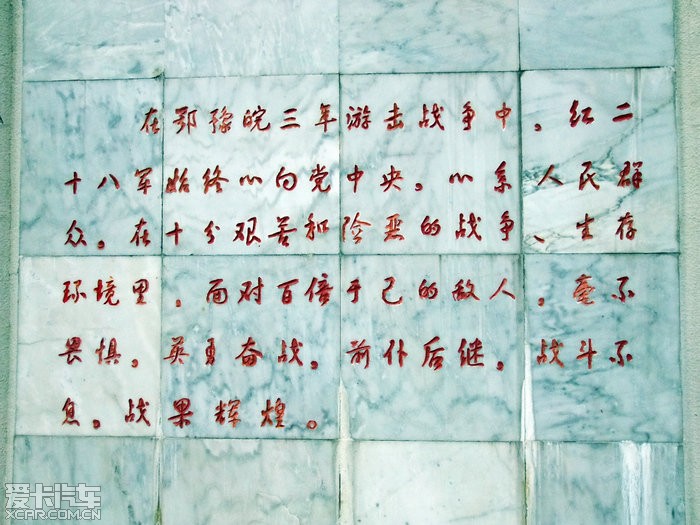 在鄂豫皖三年游击战争中，红二
十八军始终心向党中央，心系人民群
众，在十分艰苦和险恶的战争、生存
环境里，面对百倍于己的敌人，毫不
畏惧，英勇奋战，前仆后继，战斗不
息，战果辉煌。
爱卡汽车
XCAR.COM.CN